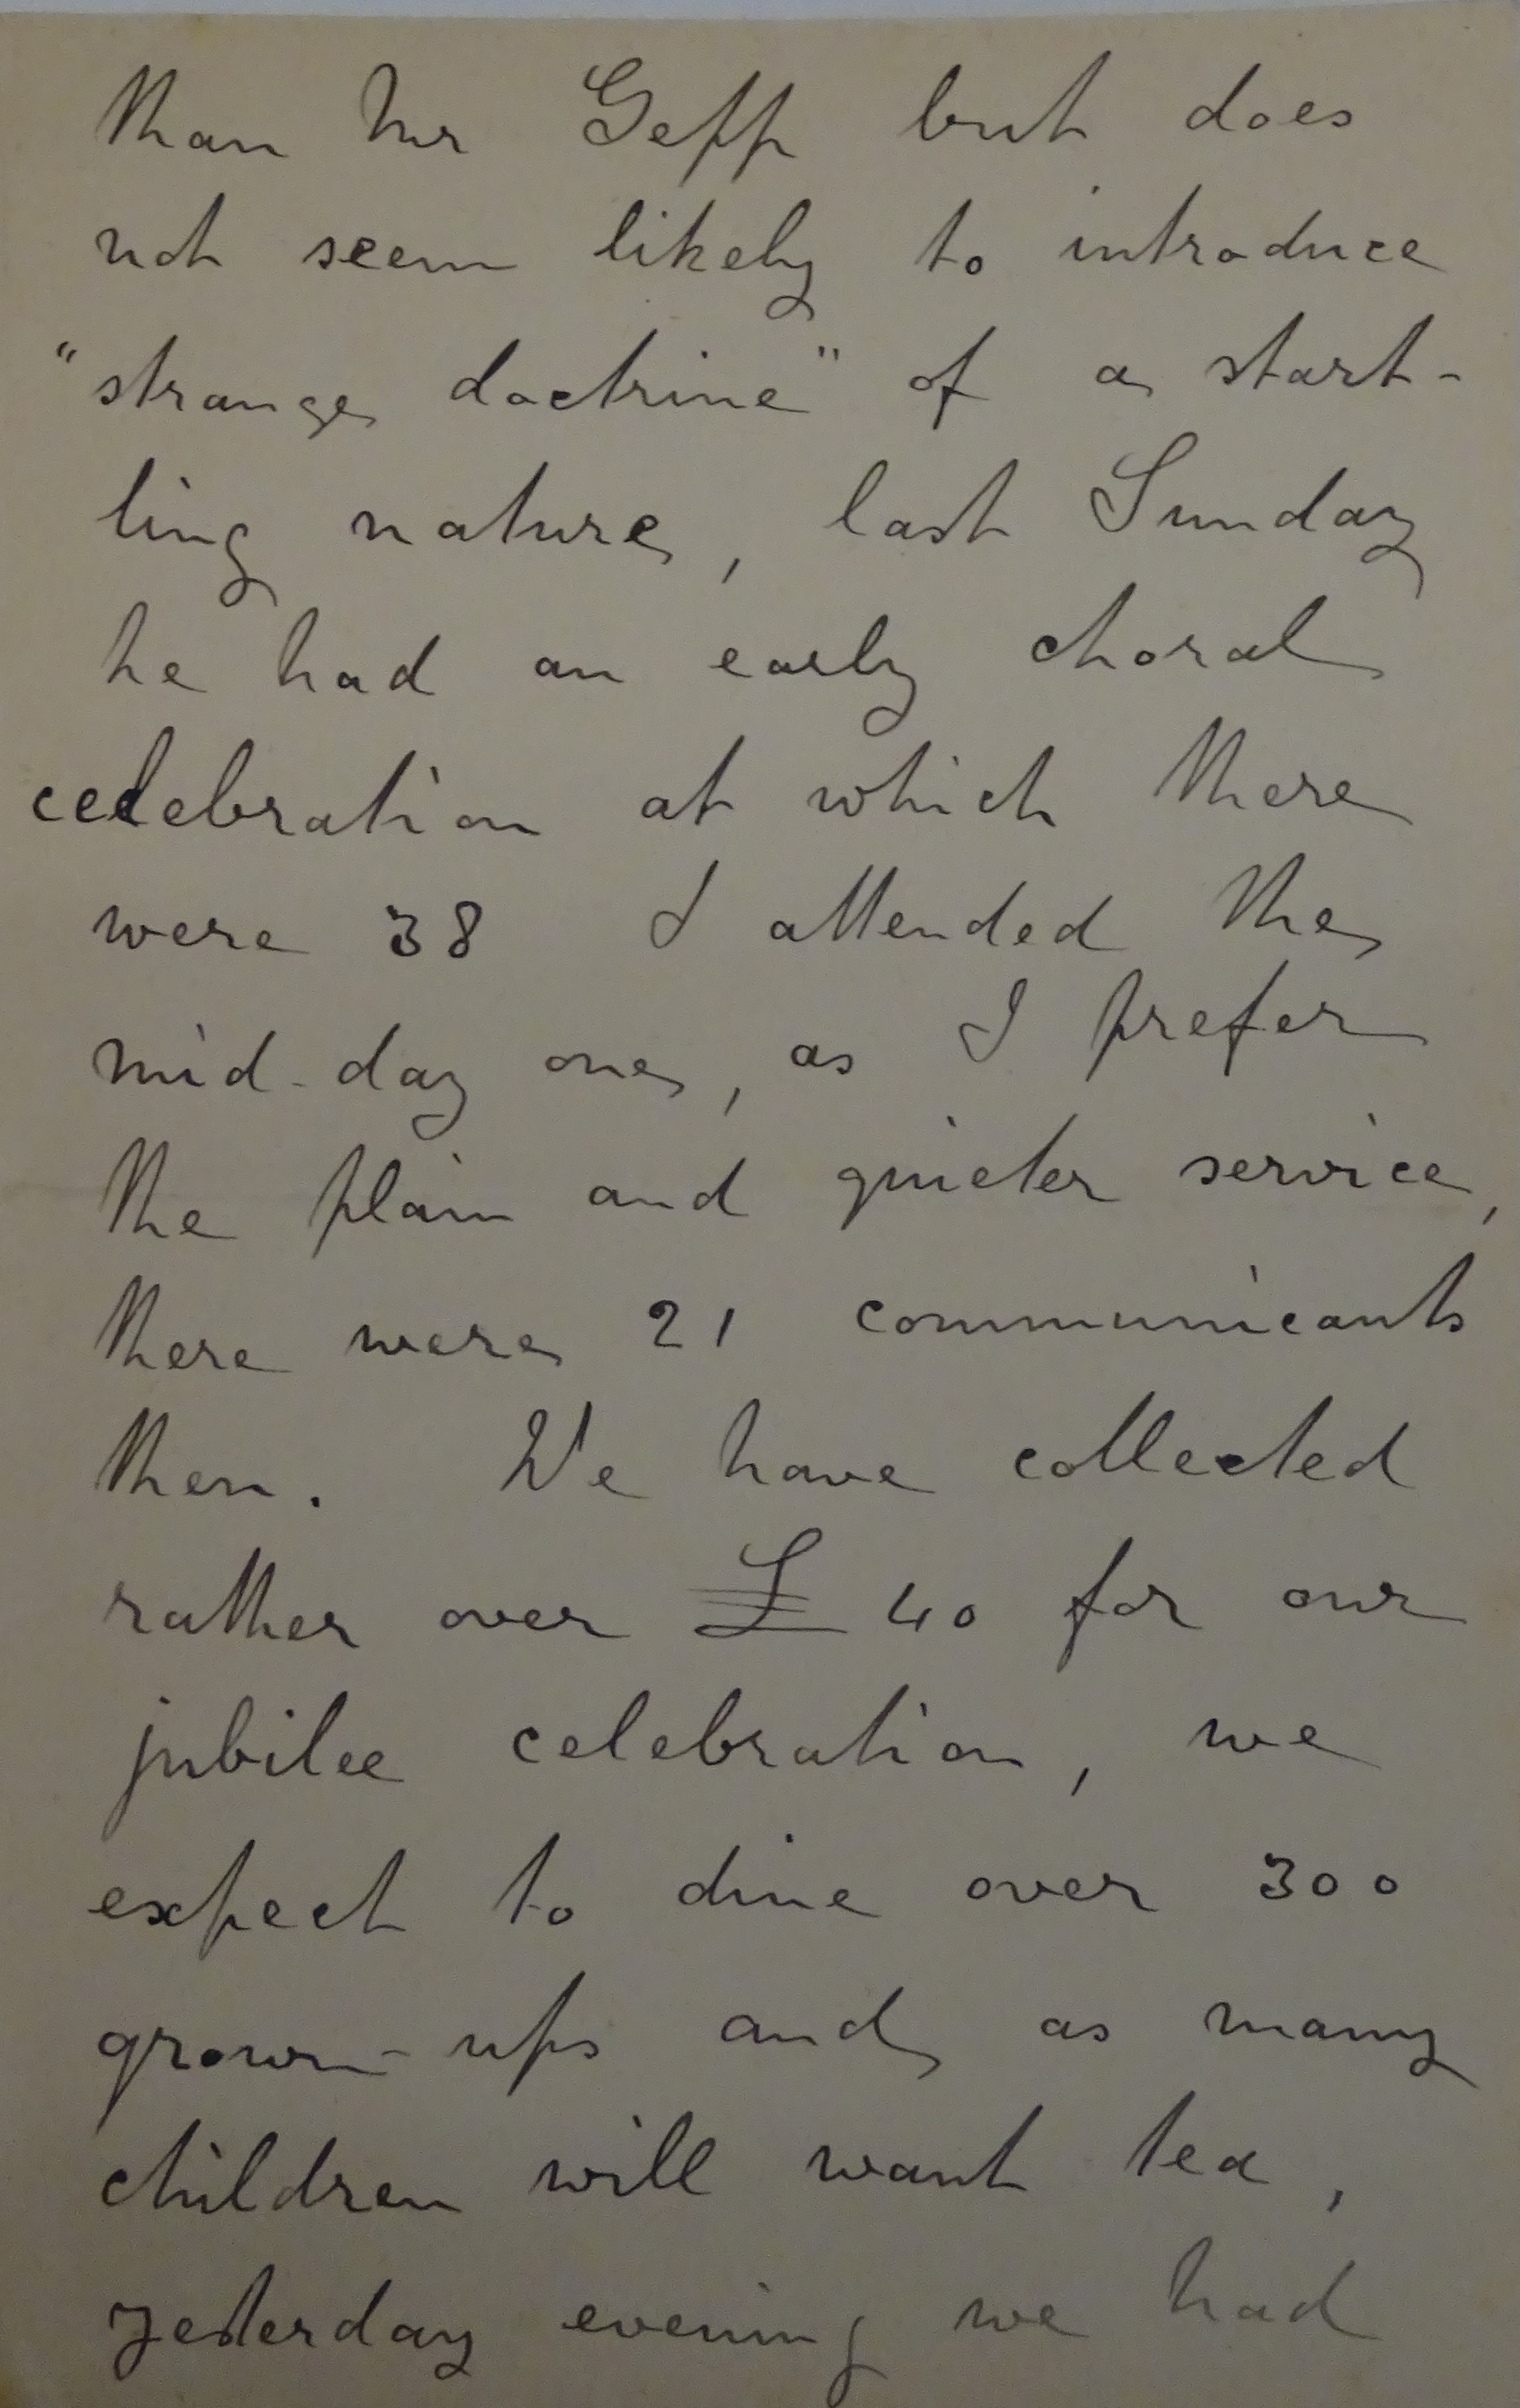 than Mr Gepp but does
not seem likely to introduce
"strange doctrine" of a start-
ling nature, last Sunday
he had an early choral
celebration at which there
were 38 I attended the
mid-day one, as I prefer
the plain and quieter service,
there were 21 communicants
then. We have collected
rather over £40 for our
jubilee celebration, we
expect to dine over 300
grown-ups and as many
children will want tea,
yesterday evening we had